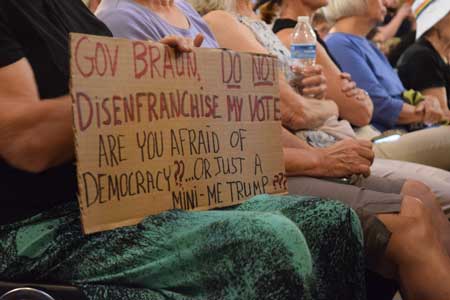 GOV BRAUN, DO NOT
DISENFRANCHISE MY VOTE
ARE YOU AFRAID OF
DEMOCRACY??...OR JUST A
MINI-ME TRUMP??